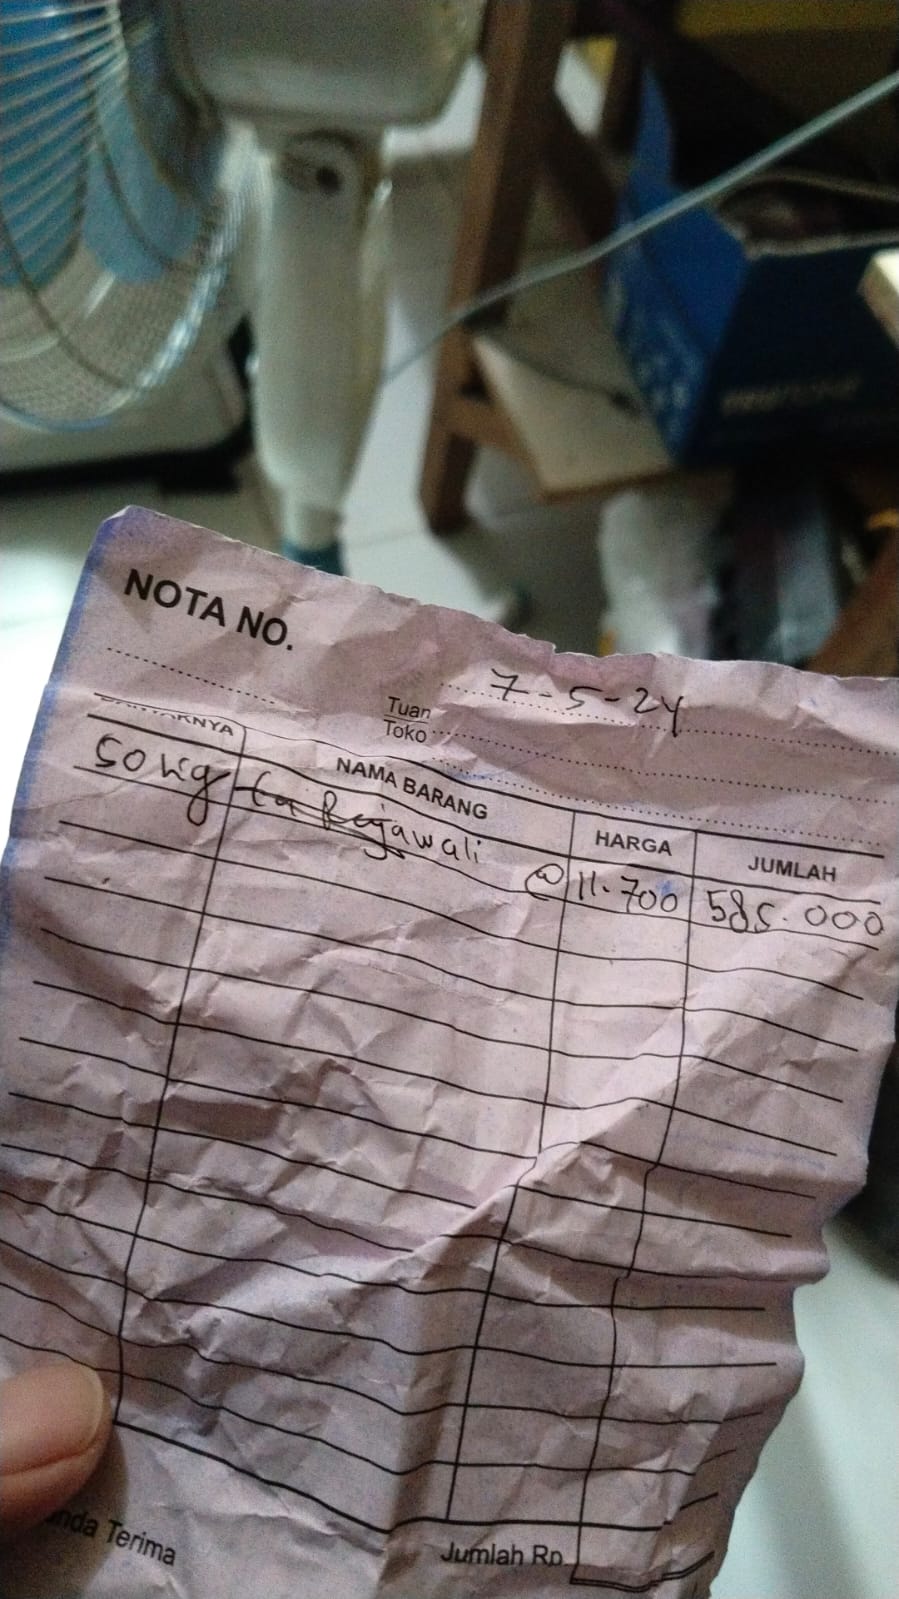 NOTA NO.
7-5-24
Tuan
Toko
NAMA BARANG
HARGA
JUMLAH
50 kg
Rajawali
@ 11.700
585.000
Terima
Jumlah Rp.